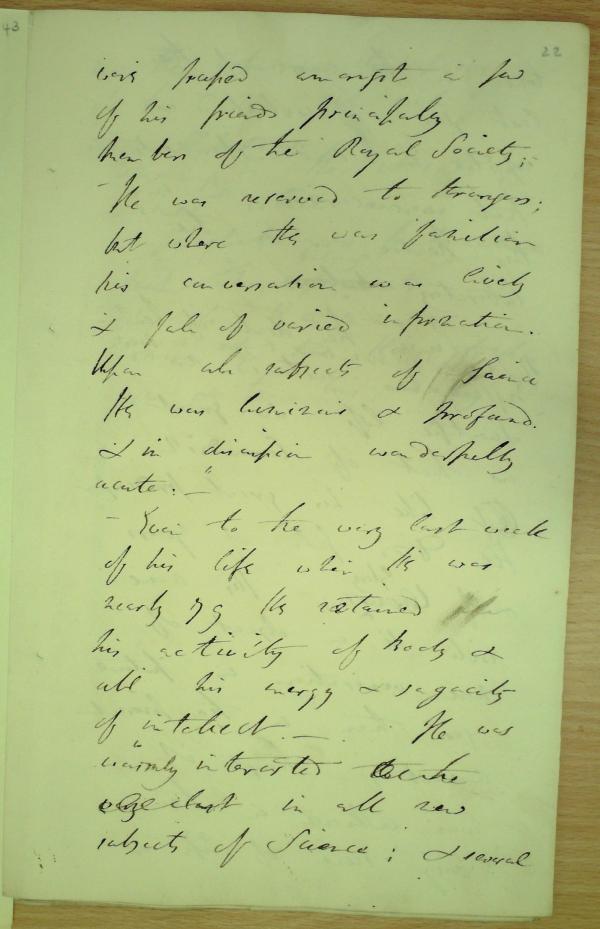 43
22
were passed amongst a few
of his friends principally
members of the Royal Society;
- He was reserved to strangers;
but where He was familiar
his conversation was lively
& full of varied information.
Upon all subjects of Science
He was luminous & profound.
& in discussion wonderfully
acute: - "
- Even to the very last week
of his life when He was
nearly 79 He retained
his activity of body &
all his energy & sagacity
of intellect. - . He was
warmly interested to the
very last in all new
subjects of Science; & several